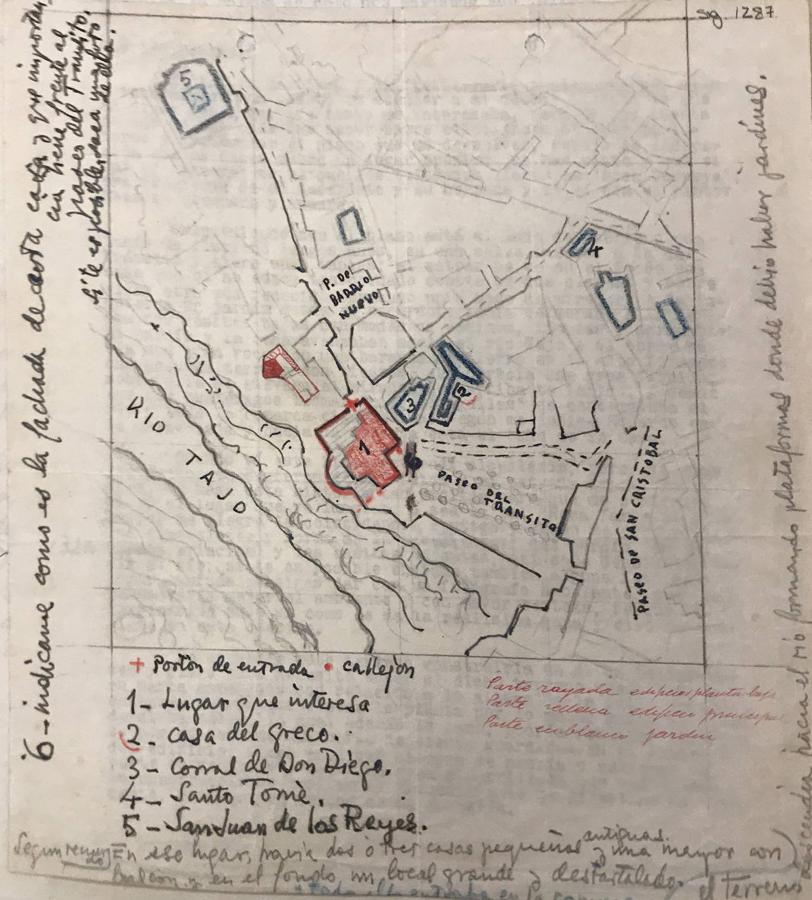 sg. 1287
6 - indicame como es la fachada de esta casa y que importancia tiene frente al
paseo del Transito,
si te es posible
5
4
P. DE
BARRIO
NUEVO
3
2
1
RIO TAJO
PASEO DEL
TRANSITO
PASEO DE SAN CRISTOBAL
hacia el rio formando plataformas donde debio haber jardines.
+ Portón de entrada • callejón
1 - Lugar que interesa
2 - casa del greco.
3 - Corral de Don Diego.
4 - Santo Tomè.
5 - San Juan de los Reyes.
Parte rayada edificios planta baja
Parte rellena edificio principal
Parte en blanco jardin
Segun En ese lugar, había dos o tres casas pequeñas antiguas y una mayor con
balcon y en el fondo un local grande y destartalado. el Terreno